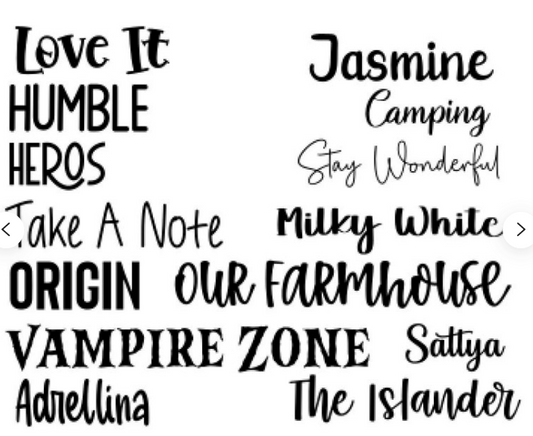 Love It
Jasmine
HUMBLE
Camping
HEROS
Stay Wonderful
Take A Note
Milky White
ORIGIN
OUR FARMHOUSE
VAMPIRE ZONE
Sattya
Adrellina
The Islander